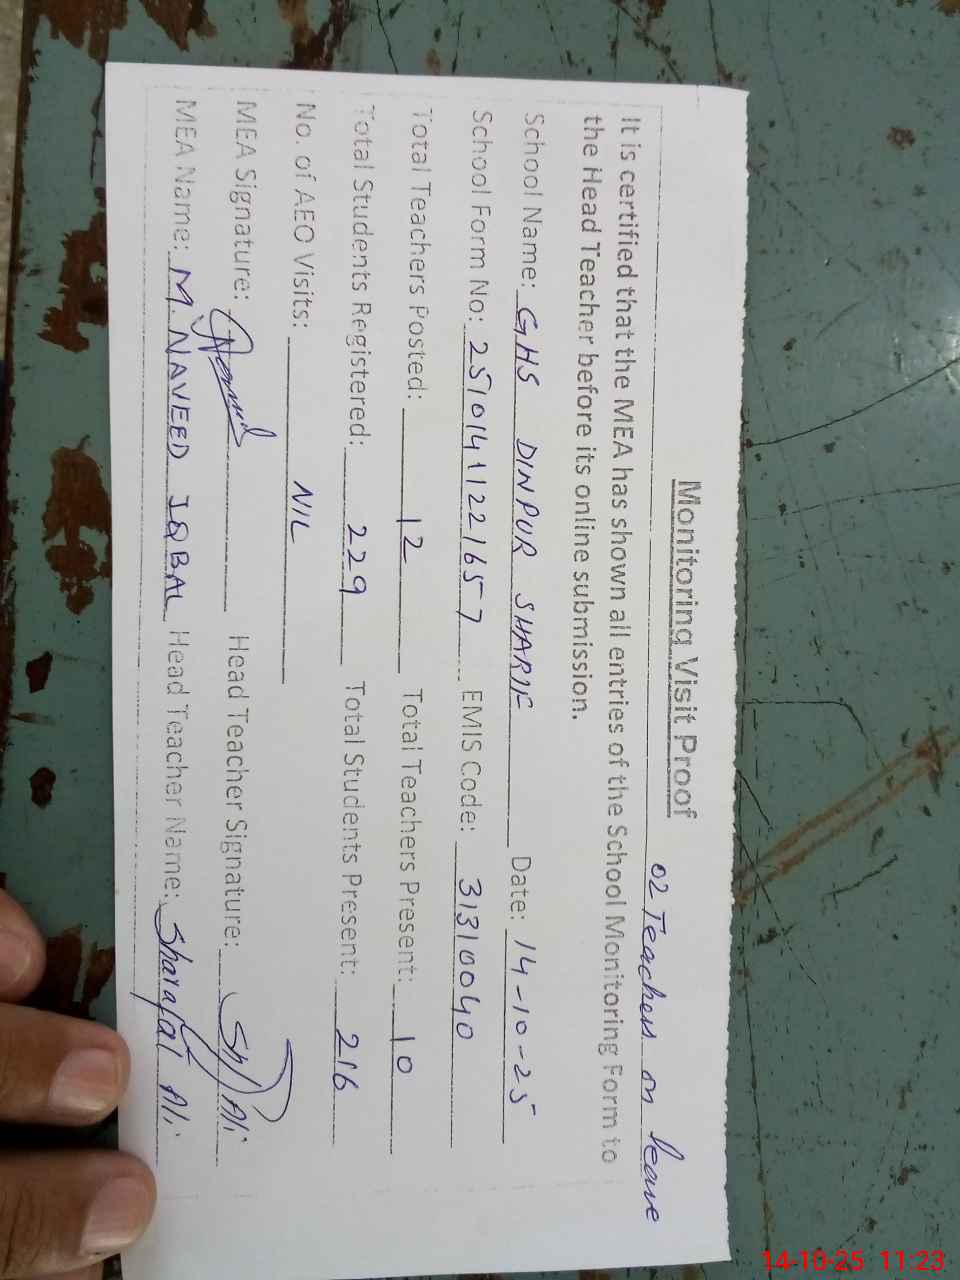 Monitoring Visit Proof
02 Teachers on leave
It is certified that the MEA has shown all entries of the School Monitoring Form to
the Head Teacher before its online submission.
School Name: GHS DINPUR SHARIF Date: 14-10-25
School Form No: 25101411221657 EMIS Code: 31310040
Total Teachers Posted: 12 Total Teachers Present: 10
Total Students Registered: 229 Total Students Present: 216
No. of AEO Visits: NIL
MEA Signature: Head Teacher Signature:
MEA Name: M. NAVEED IQBAL Head Teacher Name: Sharafat Ali
14-10-25 11:23